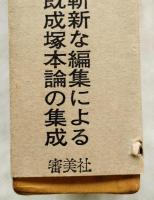 斬新な編集による
既成塚本論の集成
審美社